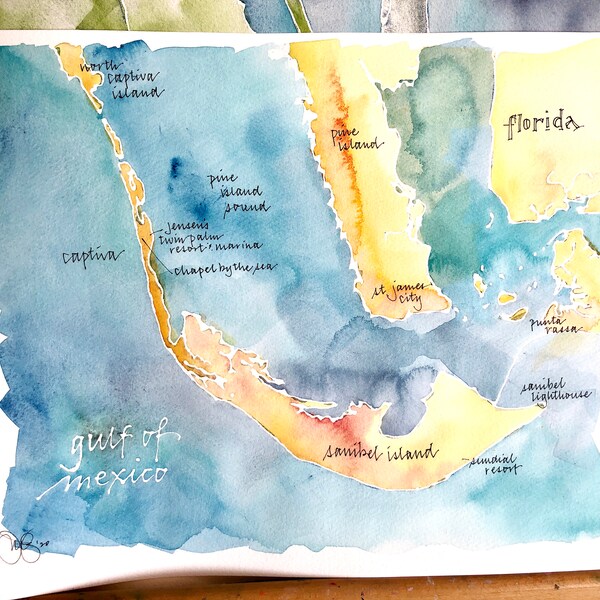 north
captiva
island
pine
island
florida
pine
island
sound
jensens
twin palm
resort & marina
captiva
chapel by the sea
st james
city
punta
rassa
sanibel
lighthouse
gulf of
mexico
sanibel island
sundial
resort
'20